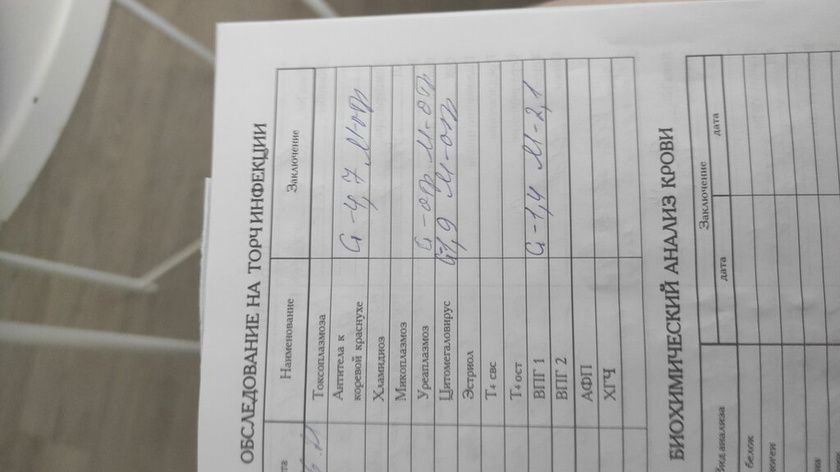 ОБСЛЕДОВАНИЕ НА ТОРЧ ИНФЕКЦИИ
Наименование Заключение
Токсоплазмоза
Антитела к
коревой краснухе G-4,7 M-отр
Хламидиоз
Микоплазмоз
Уреаплазмоз G-отр M-отр
Цитомегаловирус M-отр
Эстриол
Т4 свс
Т4 ост
ВПГ 1 G-1,4 M-2,1
ВПГ 2
АФП
ХГЧ
БИОХИМИЧЕСКИЙ АНАЛИЗ КРОВИ
Вид анализа Заключение
дата дата
белок